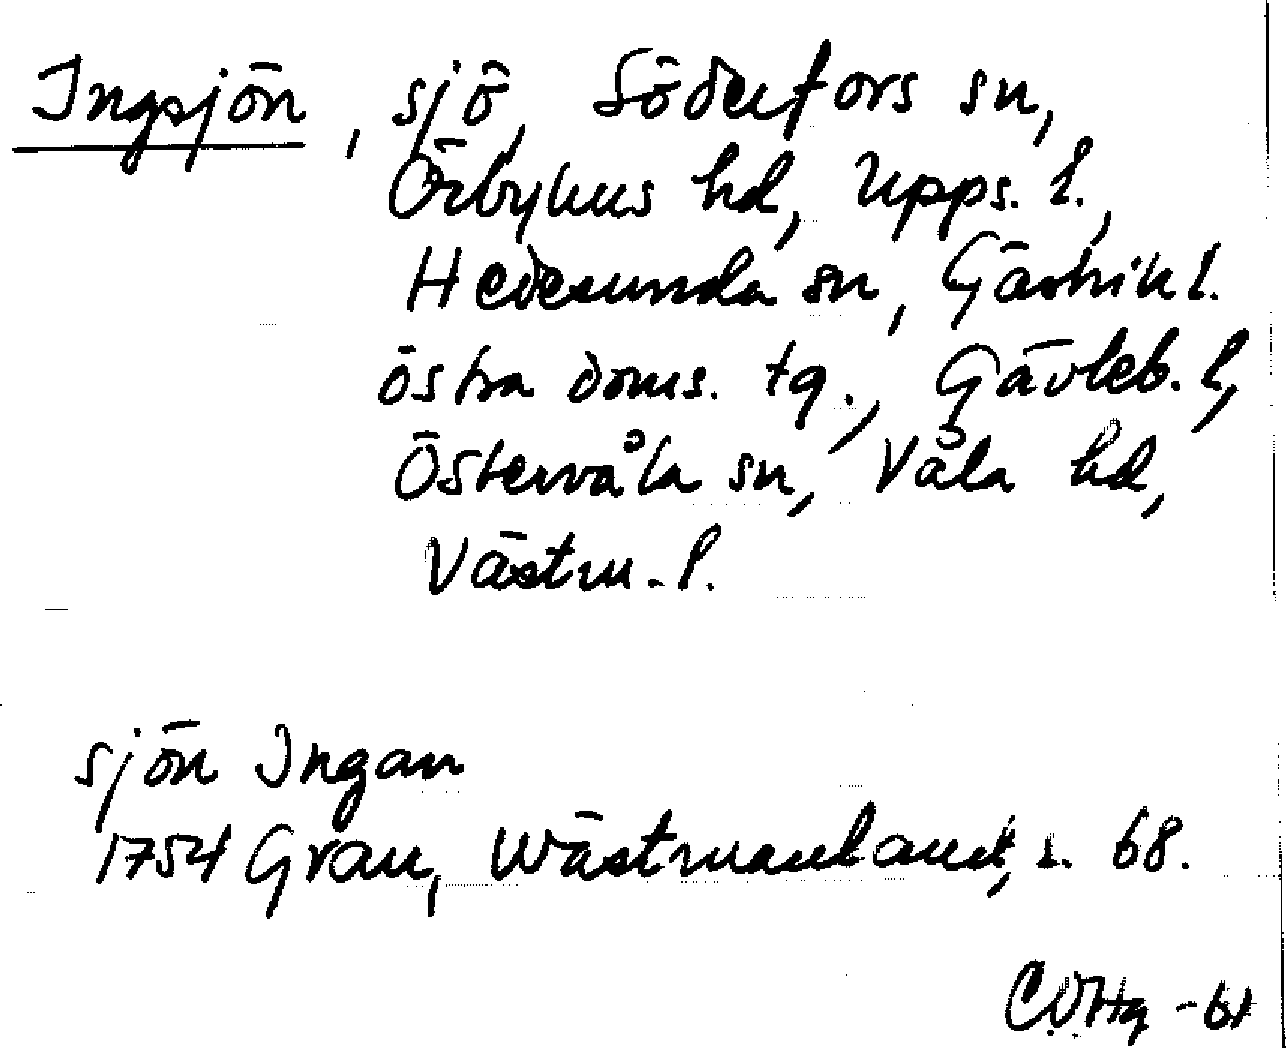 Ingsjön, sjö, Söderfors sn,
Örbyhus hd, Upps. l.,
Hedesunda sn, Gästrikl.
östra doms. tg., Gävleb. l,
Östervåla sn, Våla hd,
Västm. l.
sjön Ingan
1754 Grau, Wästmanland, s. 68.
-61